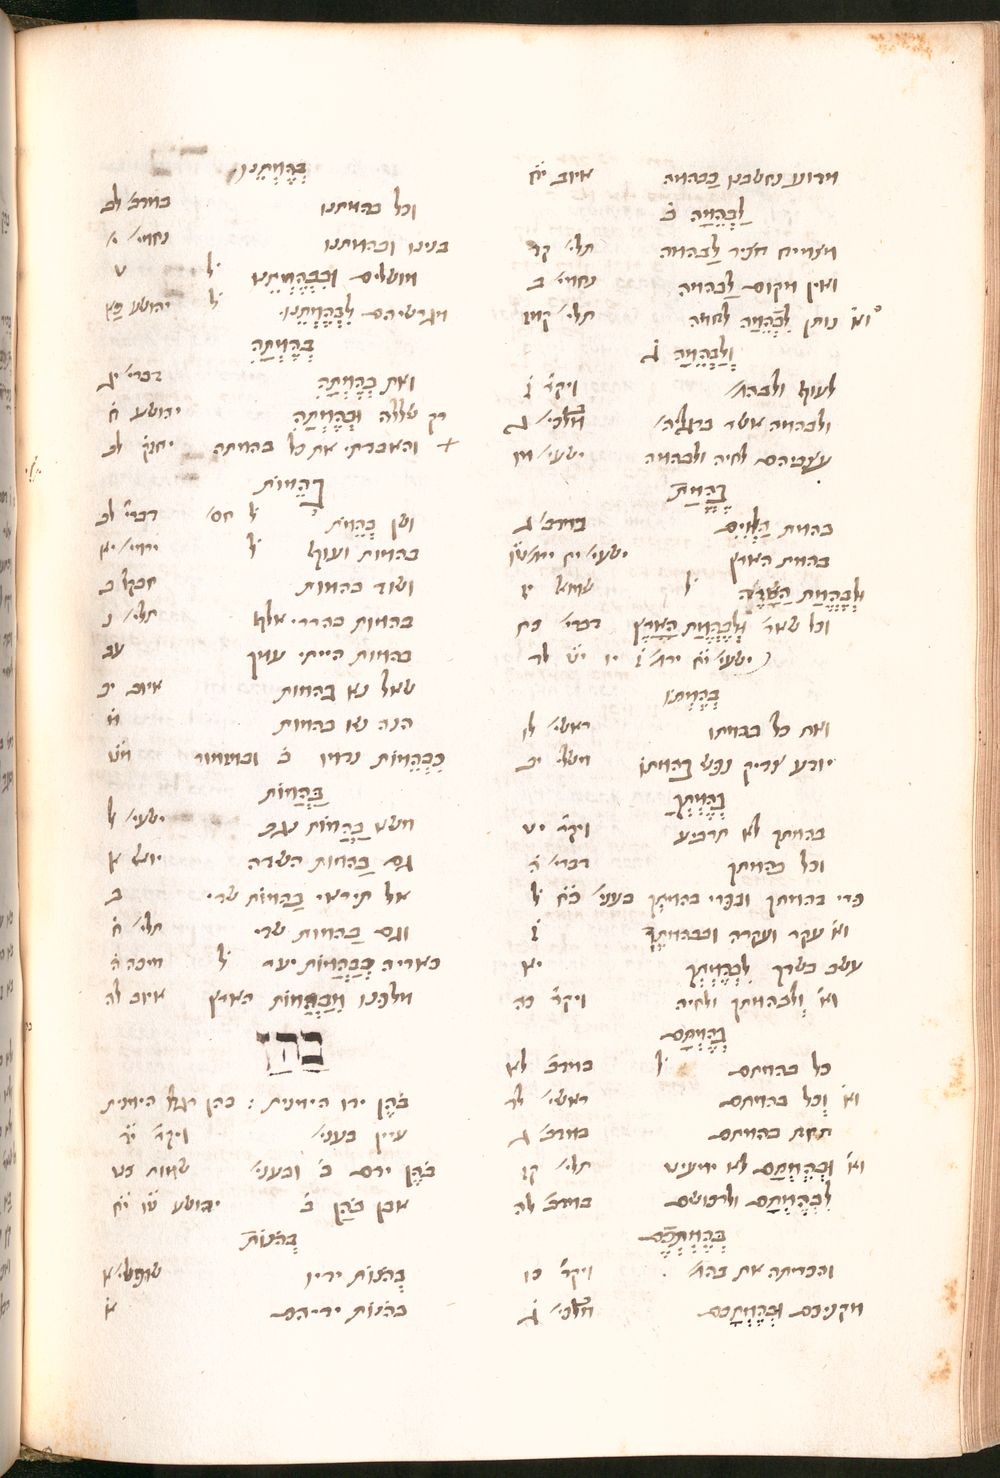 מדוע נחשבנו כבהמה איוב יח
לַבְּהֵמָה ב
מצמיח חציר לבהמה תלי' קד
ואין מקום לבהמה נחמי' ב
וא' נותן לִבְהֵמָה לחמה תלי' קמז
וְלַבְּהֵמָה ג
לעוף ולבהמ' ויקר' ז
ולבהמה אשר ברגלי' מלכי' ג
עצביהם לחיה ולבהמה ישעי' מו
בֶּהֱמַת
בהמת הַלְוִיִּם במדב' ג
בהמת הארץ ישעי' יח ירמ' טו
וּלְבֶהֱמַת הַשָּׂדֶה ל' שמואל יז
וכל שאר וּלְבֶהֱמַת הָאָרֶץ דברי' כח
ישעי' יח ירמ' ז יו יט לד
בְּהֶמְתּוֹ
ואת כל בהמתו ראשי' לו
יודע צדיק נפש בהמתו משלי יב
בְּהֶמְתְּךָ
בהמתך לא תרביע ויקר' יט
וכל בהמתך דברי' ה
פרי בהמתך ובפרי בהמתך בעני' כח ל
וא' עקר ועקרה ובבהמתך ז
עשב בשדך לִבְהֶמְתֶּךָ יא
וא' וְלבהמתך ולחיה ויקר' כה
בְּהֶמְתָּם
כל בהמתם ל' במדב' לא
וא' וְכל בהמתם ראשי' לד
תחת בהמתם במדב' ג
וא' וּבְהֶמְתָּם לא ימעיט תלי' קז
לִבְהֶמְתָּם ולרכושם במדב' לה
בְּהֶמְתְּכֶם
והכריתה את בהמ' ויקר' כו
ומקניכם וּבְהֶמְתְּכֶם מלכי' ג
בְּהֶמְתֵּנוּ
וכל בהמתנו במדב' לב
בנינו ובהמתנו נחמי' י
מושלים וּבִבְהֶמְתֵּנוּ ל' ט
ומגרשיהם לִבְהֶמְתֵּנוּ ל' יהושע כא
בְּהֶמְתָּהּ
ואת בְּהֶמְתָּהּ דברי' יג
רק שללה וּבְהֶמְתָּהּ יהושע ח
והאבדתי את כל בהמתה יחזק' לב
בְּהֵמוֹת
ושן בְּהֵמוֹת ל' חס' דברי' לב
בהמות ועוף ל' ירמי' יא
ושוד בהמות חבקל ב
בהמות בהררי אלף תלי' נ
בהמות הייתי עמך עג
שאל נא בהמות איוב יב
הנה נא בהמות מ
כִּבְהֵמוֹת נדמו ב' ובמזמור מט
בַּהֲמוֹת
משא בַּהֲמוֹת נגב ישעי' ל
גם בַּהמות השדה יואל א
אל תיראי בַּהֲמוֹת שדי ב
וגם בהמות שדי תלי' ח
כאריה בְּבַהֲמוֹת יער ל' מיכה ה
מלפנו מִבַּהֲמוֹת הארץ איוב לה
בהן
בֹּהֶן ידו הימנית : בהן רגלו הימנית
עיין בעני' ויקר' יד
בֹּהֶן ידם ב' ובעני' שמות כט
אבן בֹּהַן ב' יהושע טו יח
בְּהֹנוֹת
בְּהֹנוֹת ידיו שופטי' א
בהונות ידיהם א'